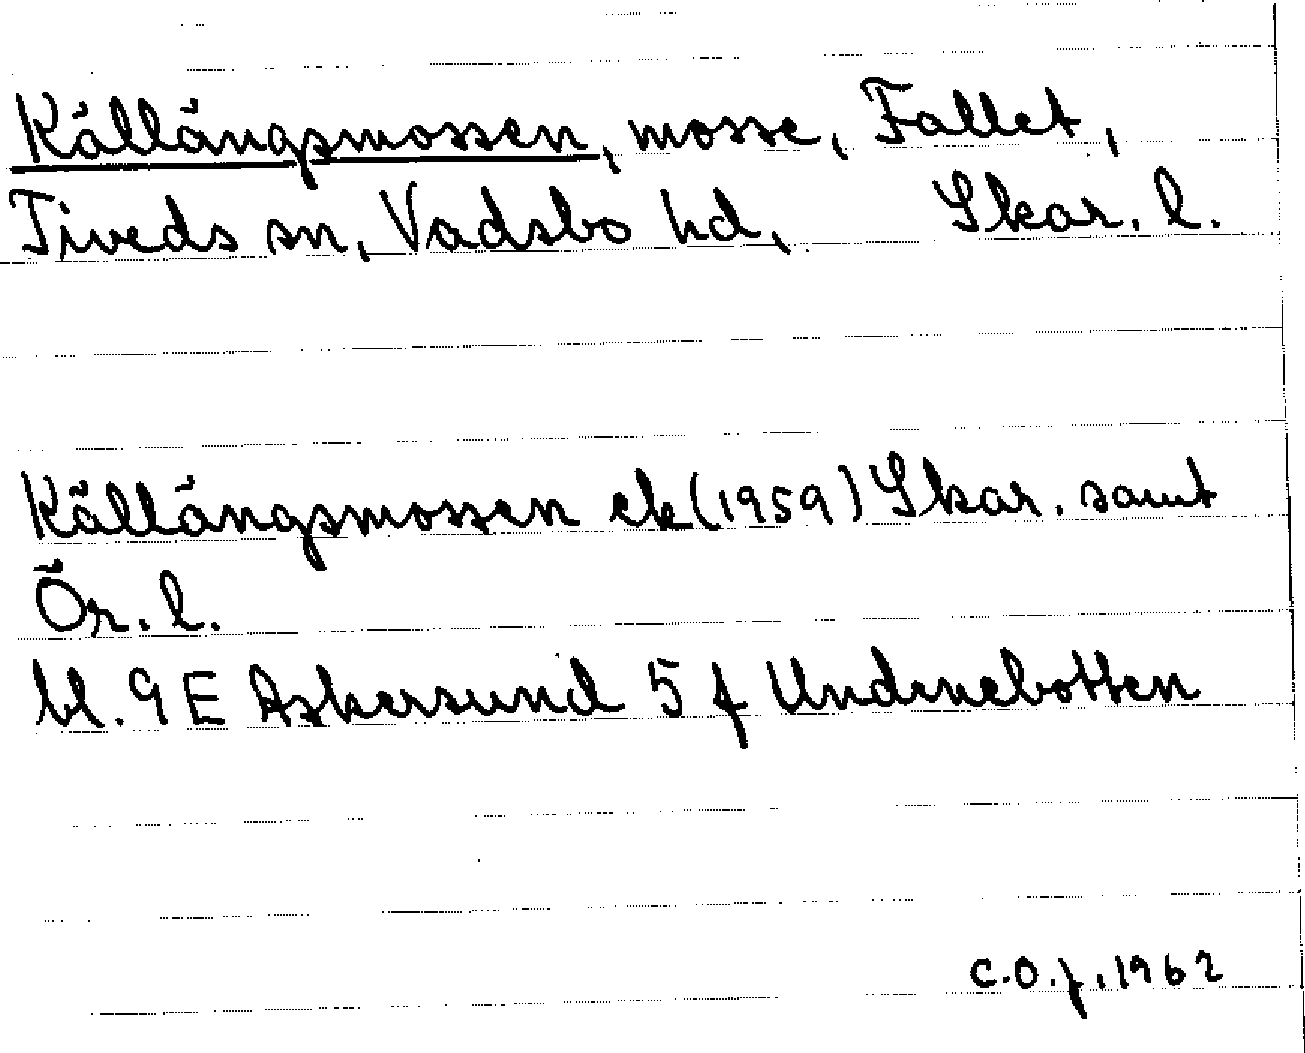 Källängsmossen, mosse, Fallet,
Tiveds sn, Vadsbo hd, Skar. l.
Källängsmossen ek (1959) Skar. samt
Ör. l.
bl. 9 E Askersund 5 f Undenebotten
C.O.f. 1962